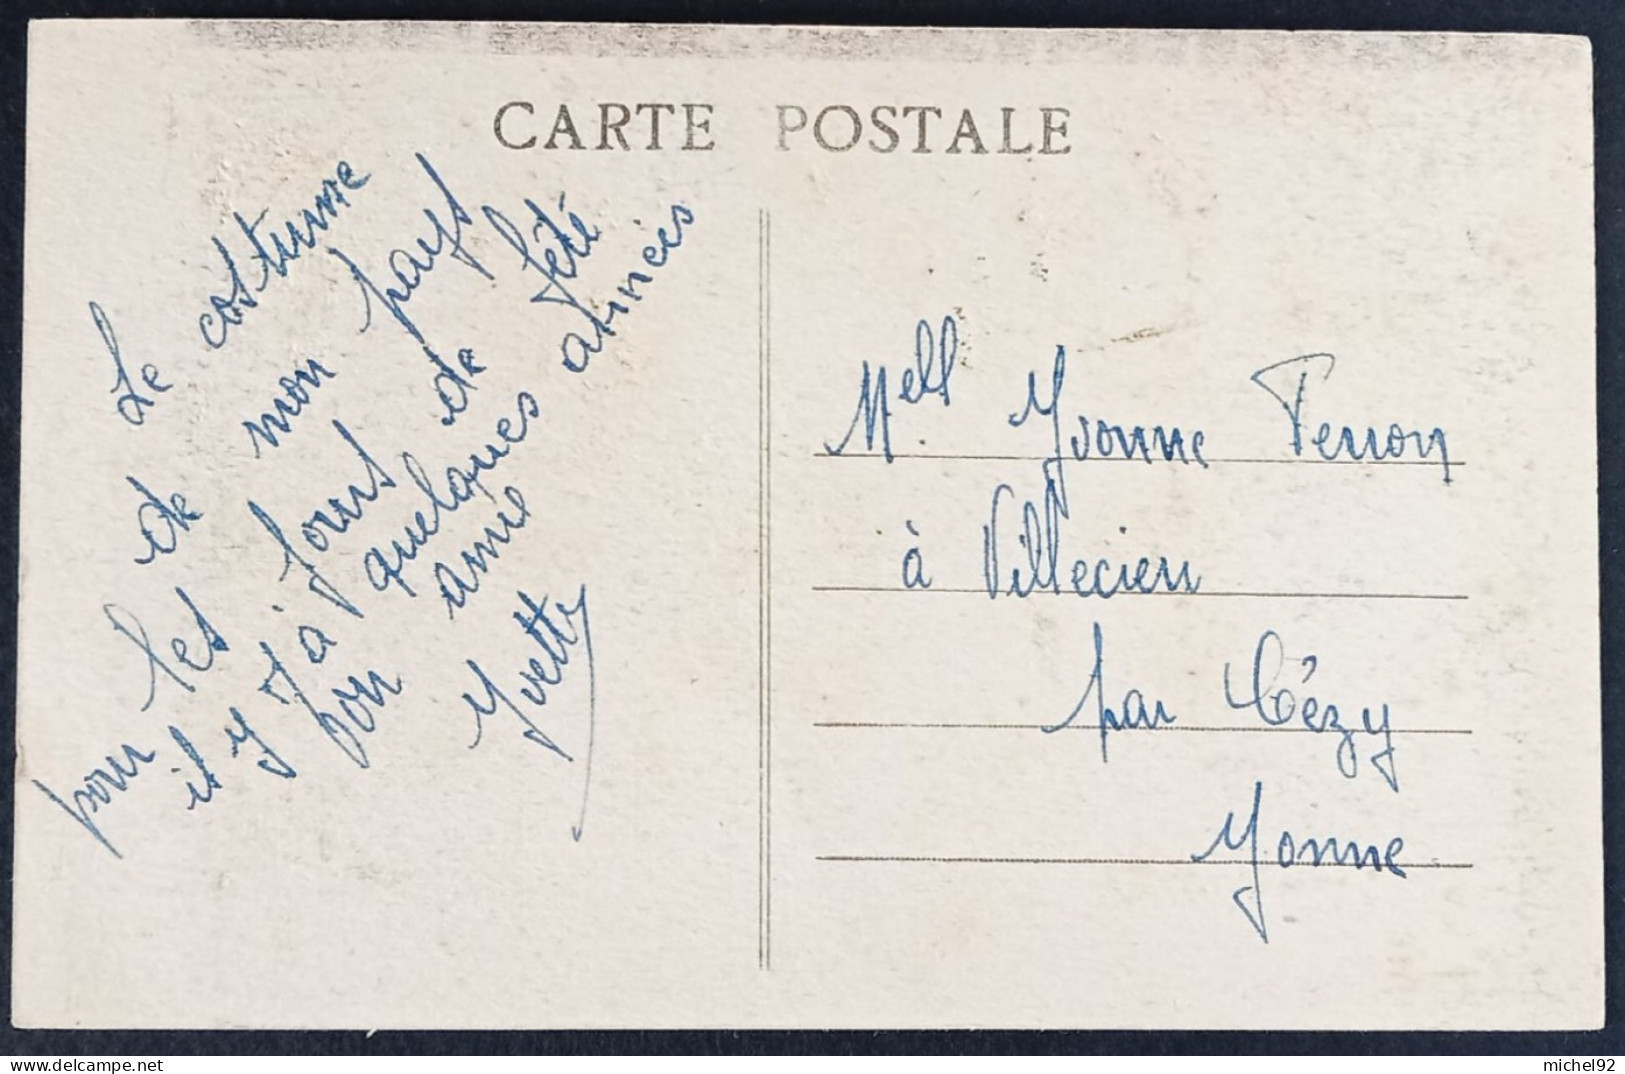 CARTE POSTALE
Le costume
de mon pays
pour les jours de fêté
il y'a quelques années
bon ami
Yvette
Mell Yvonne Perron
à Villecien
par Cézy
Yonne
michel92